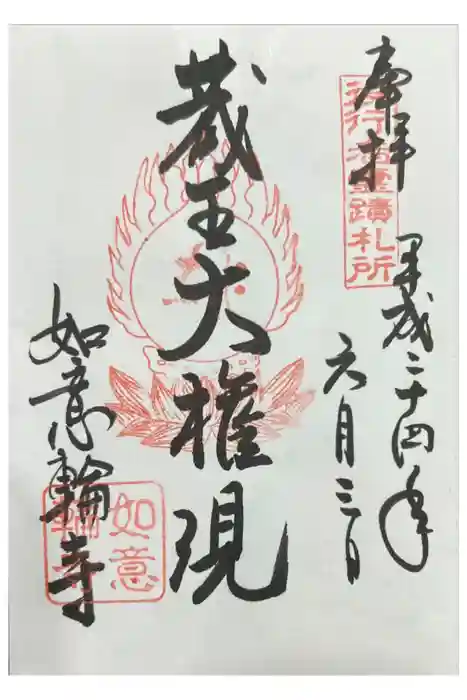 奉拝
平成二十四年
六月三日
蔵王大権現
如意輪寺
霊蹟札所
如意
輪寺